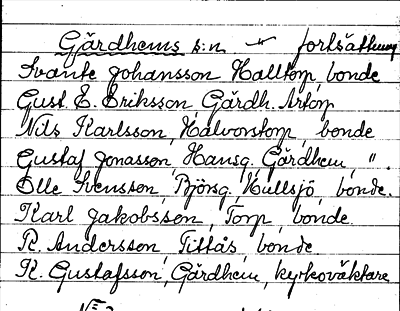 Gärdhems s:n " fortsättning
Svante Johansson, Halltorp, bonde
Gust. E. Eriksson, Gärdh. Artorp
Nils Karlsson, Halvorstorp, bonde
Gustaf Jonasson, Hansg. Gärdhem, ".
Olle Svensson, Björsg, Hullsjö, bonde.
Karl Jakobsson, Torp, bonde
R. Andersson, Tittås, bonde.
K. Gustafsson, Gärdhem, kyrkoväktare